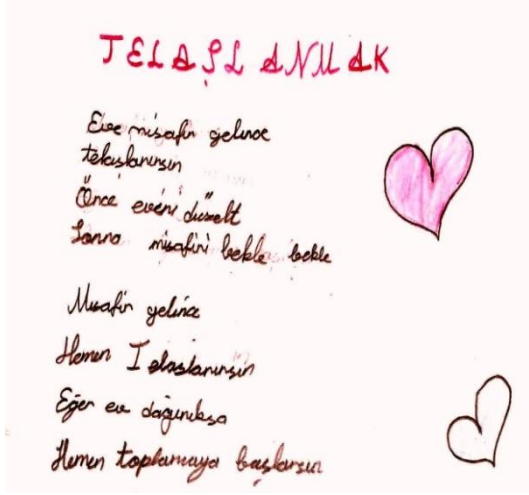 TELAŞLANMAK
Eve misafir gelince
telaşlanırsın
Önce evini düzelt
Sonra misafiri bekle bekle
Misafir gelince
Hemen Telaşlanırsın
Eğer ev dağınıksa
Hemen toplamaya başlarsın